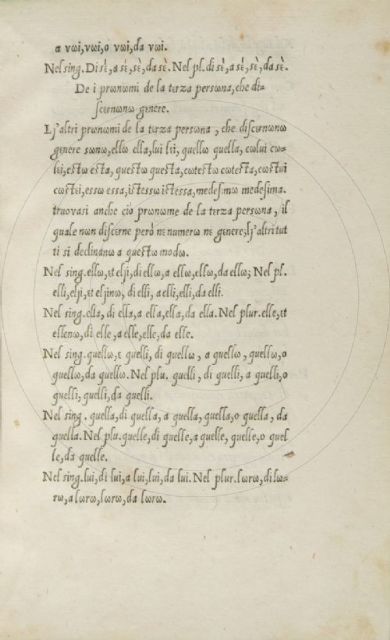 a vωi, vωi, o vωi, da vωi.
Nel sing. Di sὲ, a sὲ, sὲ, da sὲ. Nel pl. di sὲ, a sὲ, sὲ, da sὲ.
De i prωnωmi de la terza persωna, che di=
scernωnω genere.
Lj'altri prωnωmi de la terza persωna, che discernωnω
genere sωnω, ellω ella, lui lεi, quellω quella, cωlui cω=
lεi, estω esta, questω questa, cωtestω cωtesta, cωstui
cωstεi, essω essa, istessω istessa, medesimω medesima.
truovasi anche ciò prωnωme de la terza persωna, il
quale nωn discerne però nε numerω ne genere; lj'altri tut
ti si declinanω a questω modω.
Nel sing. ellω, et elji, di ellω, a ellω, ellω, da ellω; Nel pl.
elli, elji, et eljinω, di elli, a elli, elli, da elli.
Nel sing. ella, di ella, a ella, ella, da ella. Nel plur. elle, et
ellenω, di elle, a elle, elle, da elle.
Nel sing. quellω, ε quelli, di quellω, a quellω, quellω, o
quellω, da quellω. Nel plu. quelli, di quelli, a quelli, o
quelli, quelli, da quelli.
Nel sing. quella, di quella, a quella, quella, o quella, da
quella. Nel plu. quelle, di quelle, a quelle, quelle, o quel
le, da quelle.
Nel sing. lui, di lui, a lui, lui, da lui. Nel plur. lωrω, di lω=
rω, a lωrω, lωrω, da lωrω.